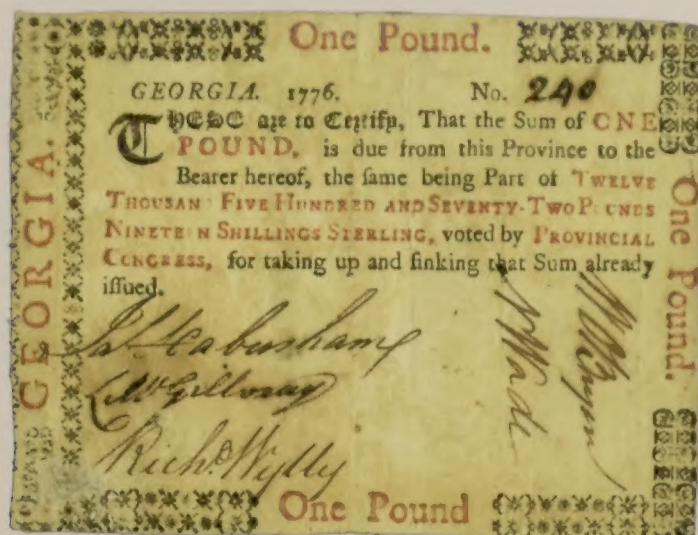 One Pound.
GEORGIA. 1776. No. 240
THESE are to Certify, That the Sum of ONE
POUND, is due from this Province to the
Bearer hereof, the ſame being Part of TWELVE
THOUSAND FIVE HUNDRED AND SEVENTY-TWO POUNDS
NINETEEN SHILLINGS STERLING, voted by PROVINCIAL
CONGRESS, for taking up and ſinking that Sum already
iſſued.
Jas Habersham
Richd Wylly
N Wade
One Pound
GEORGIA.
One Pound.